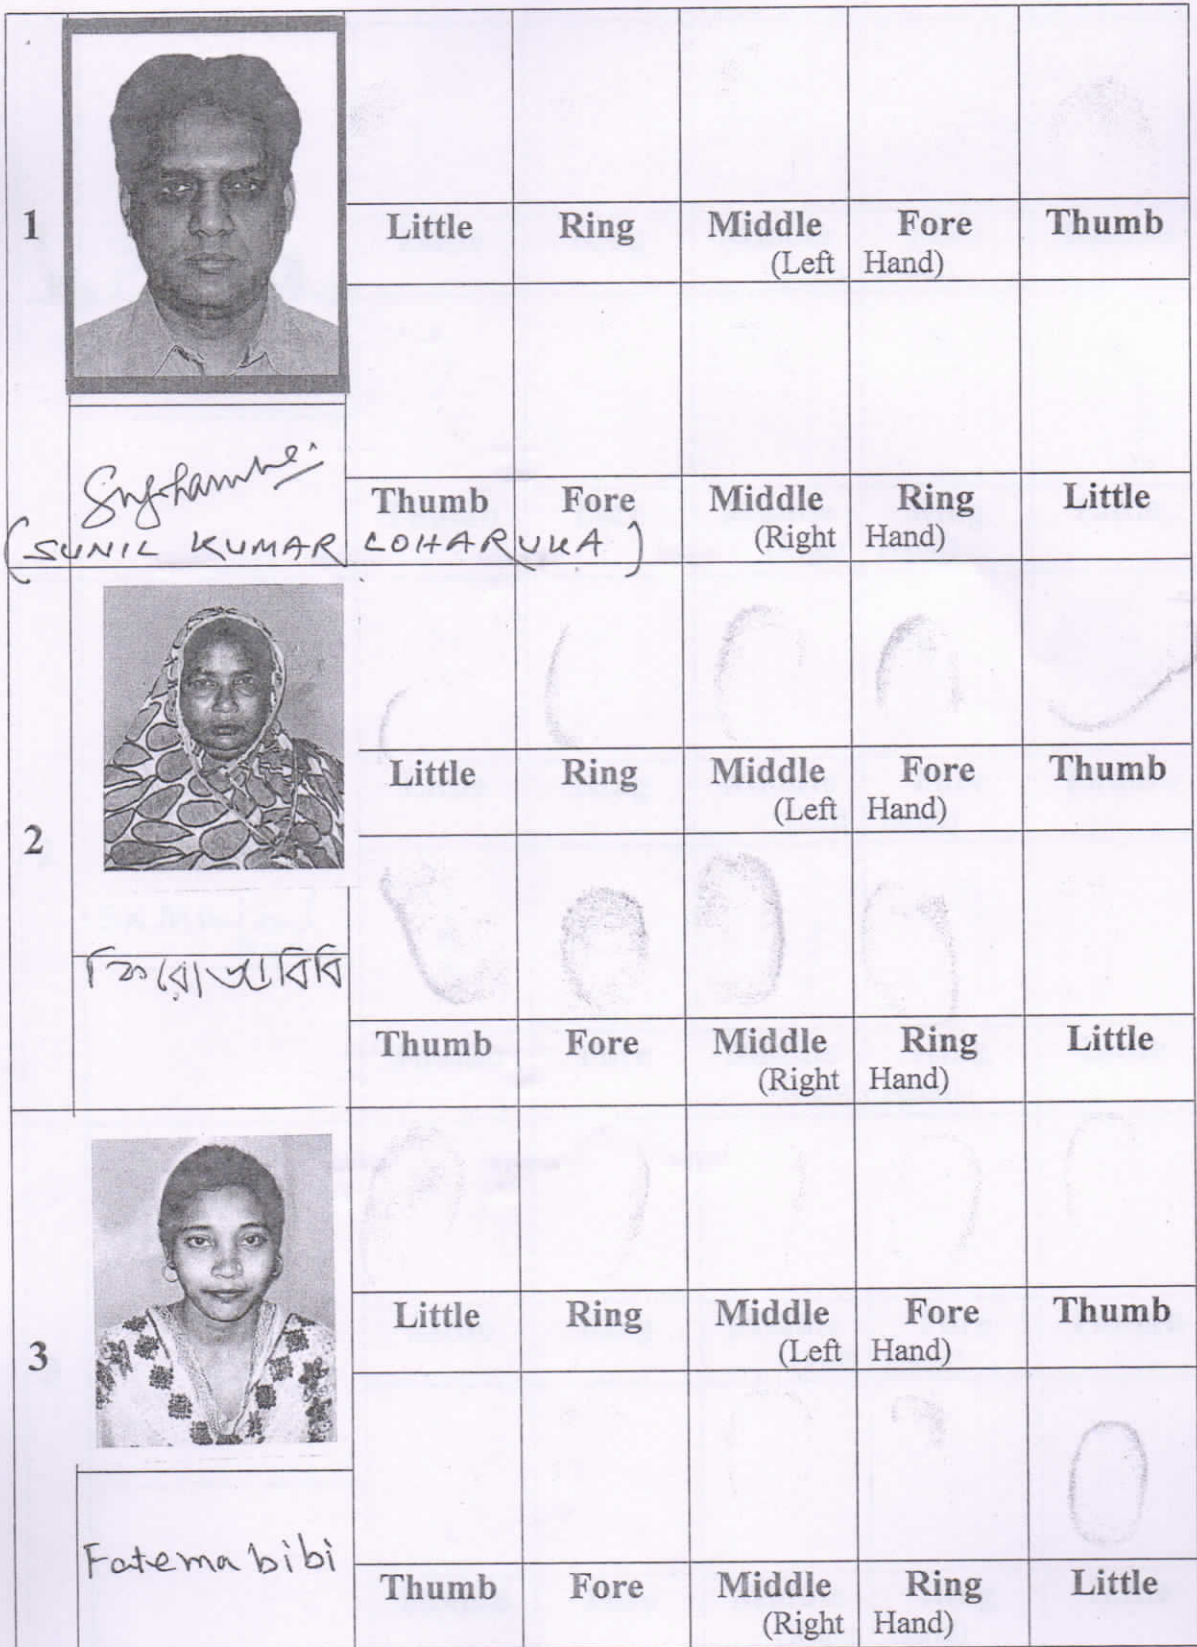 1
Little Ring Middle Fore Thumb
(Left Hand)
Thumb Fore Middle Ring Little
(Right Hand)
(SUNIL KUMAR LOHARUKA)
2
Little Ring Middle Fore Thumb
(Left Hand)
ফিরোজা বিবি
Thumb Fore Middle Ring Little
(Right Hand)
3
Little Ring Middle Fore Thumb
(Left Hand)
Fatema bibi
Thumb Fore Middle Ring Little
(Right Hand)